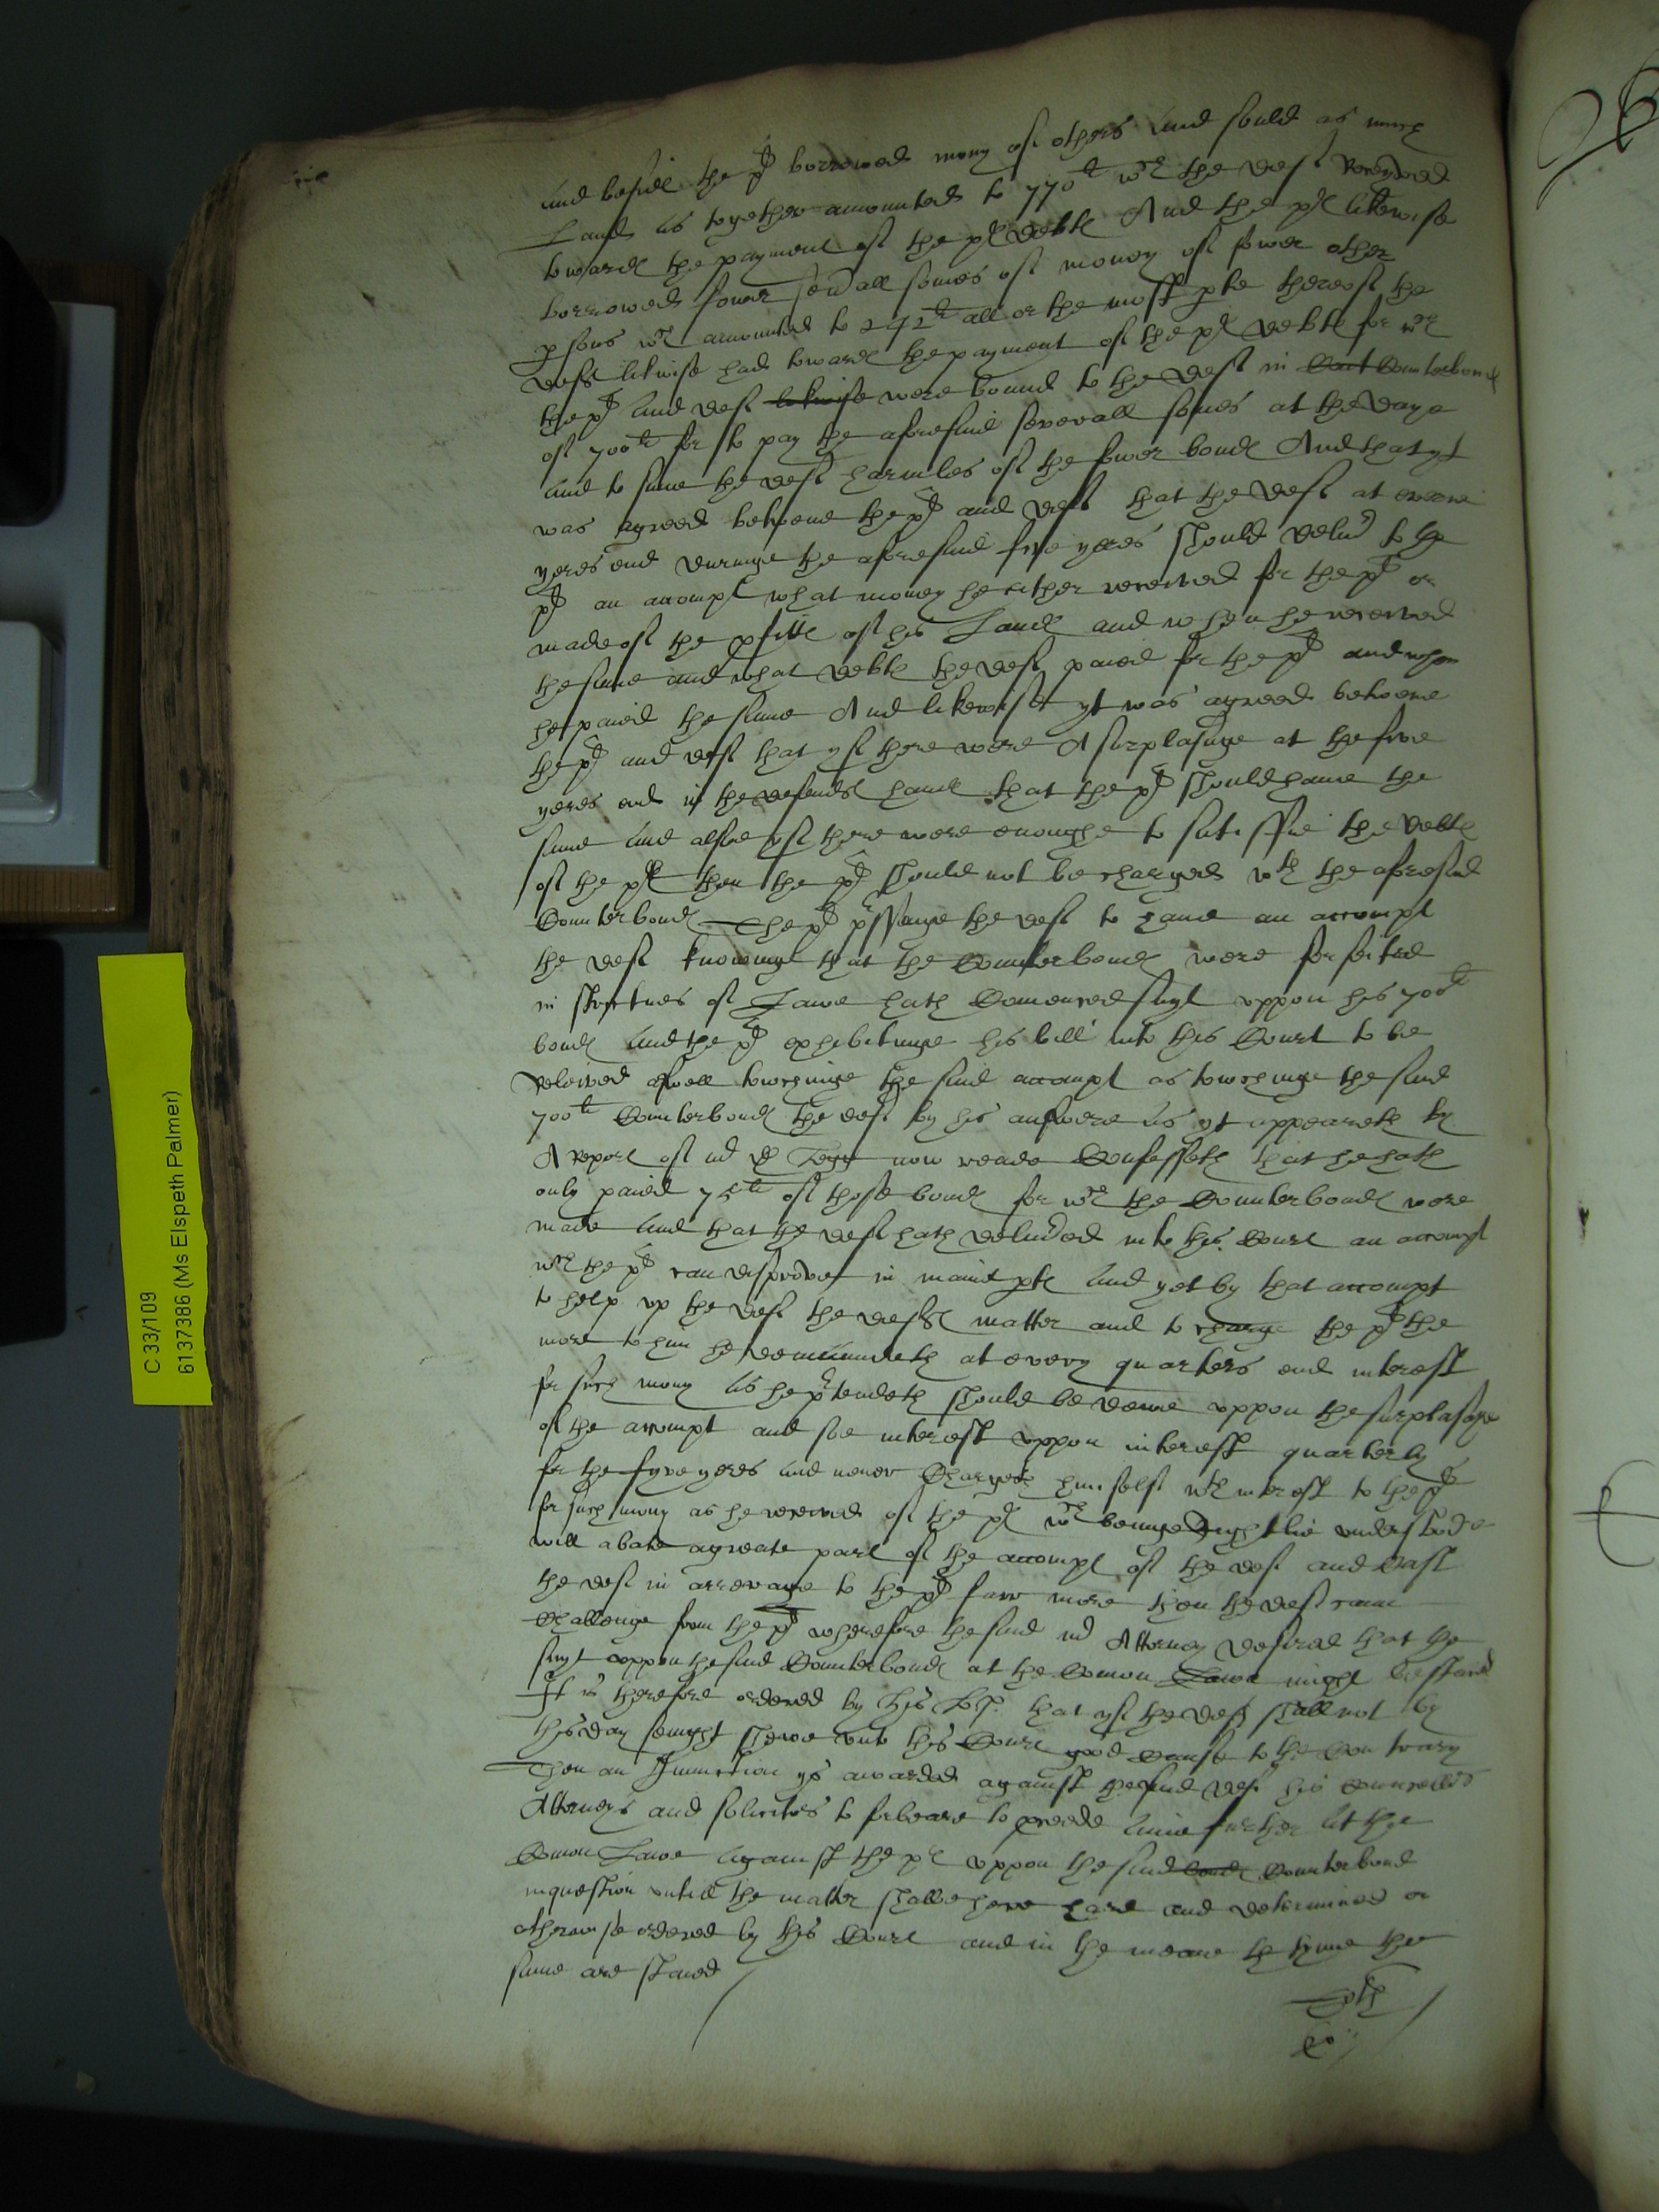 and beside the pl borrowed mony of others and sould as much
Land as together amounted to 770li wch the deft receyved
towardℓ the payment of the plℓ debtℓ And the plℓ likewise
borrowed fower seuall somes of money of fower other
psons wch amounted to 242li all or the most pte thereof the
deft likewise had towardℓ the payment of the plℓ debtℓ for wch
the pl and deft likewise were bound to the deft in Counterbondℓ
of 700li for to pay the aforesaid severall somes at the daye
and to saue the deft harmles of the fower bondℓ And that yt
was agreed betwene the pl and deft that the deft at everie
yeres end duringe the aforesaid five yeres should deliu to the
pl an accompt what money he either received for the pl or
made of the pfittℓ of his Landℓ and when he received
the same and what debtℓ the deft paied for the pl and when
he paied the same And likewise yt was agreed betwene
the pl and deft that yf there were A surplasage at the five
yeres end in the defendtℓ handℓ that the pl should haue the
same and alsoe yf there were enoughe to satisfie the debtℓ
of the plℓ then the pl should not be charged wth the aforesaid
Counterbondℓ The pl pssinge the deft to haue an accompt
the deft knowing that the Counterbondℓ were forfeited
in strictnes of Lawe hath Comenced suyt uppon his 700li
bondℓ and the pl exhibitinge his bill into this Court to be
releived aswell towchinge the said accompt as towchinge the said
700li Counterbondℓ the deft by his answere as yt appeareth by
A report of mr now reade Confesseth that he hath
only paied 75li of those bondℓ for wch the Counterbondℓ were
made and that the deft hath deliued into this Court an accompt
wch the pl can disprove in manie ptℓ and yet by that accompt
to help up the deft the deftℓ matter and to charge the pl the
more to him he demaundeth at every quarters end interest
for such mony as he ptendeth should be dewe uppon the surplasage
of the accompt and soe interest uppon interest quarterly
for the fyve yeres and never Chargeth himself wth interest to the pl
for such mony as he received of the plℓ wch beinge rightlie understode
will abate a greate part of the accompt of the deft and Cast
the deft in arrerage to the pl farr more then the deft cann
Challenge from the pl wherefore the said mr Attorney desired that the
suyt uppon the said Counterbondℓ at the Comon Lawe might be staied
It is therefore ordered by his Lop. that yf the deft shall not by
this day senight shewe unto this Court good Cause to the Contrary
Then an Iniunction ys awarded against the said deft his Councellrs
Attorneys and solicitors to forbeare to pceede anie further at the
Comon Lawe against the plℓ uppon the said bondℓ Counterbond
in question untill the matter shalbe here hard and determined or
otherwise ordered by this Court and in the meane th tyme the
same are staied
C 33/109
6137386 (Ms Elspeth Palmer)